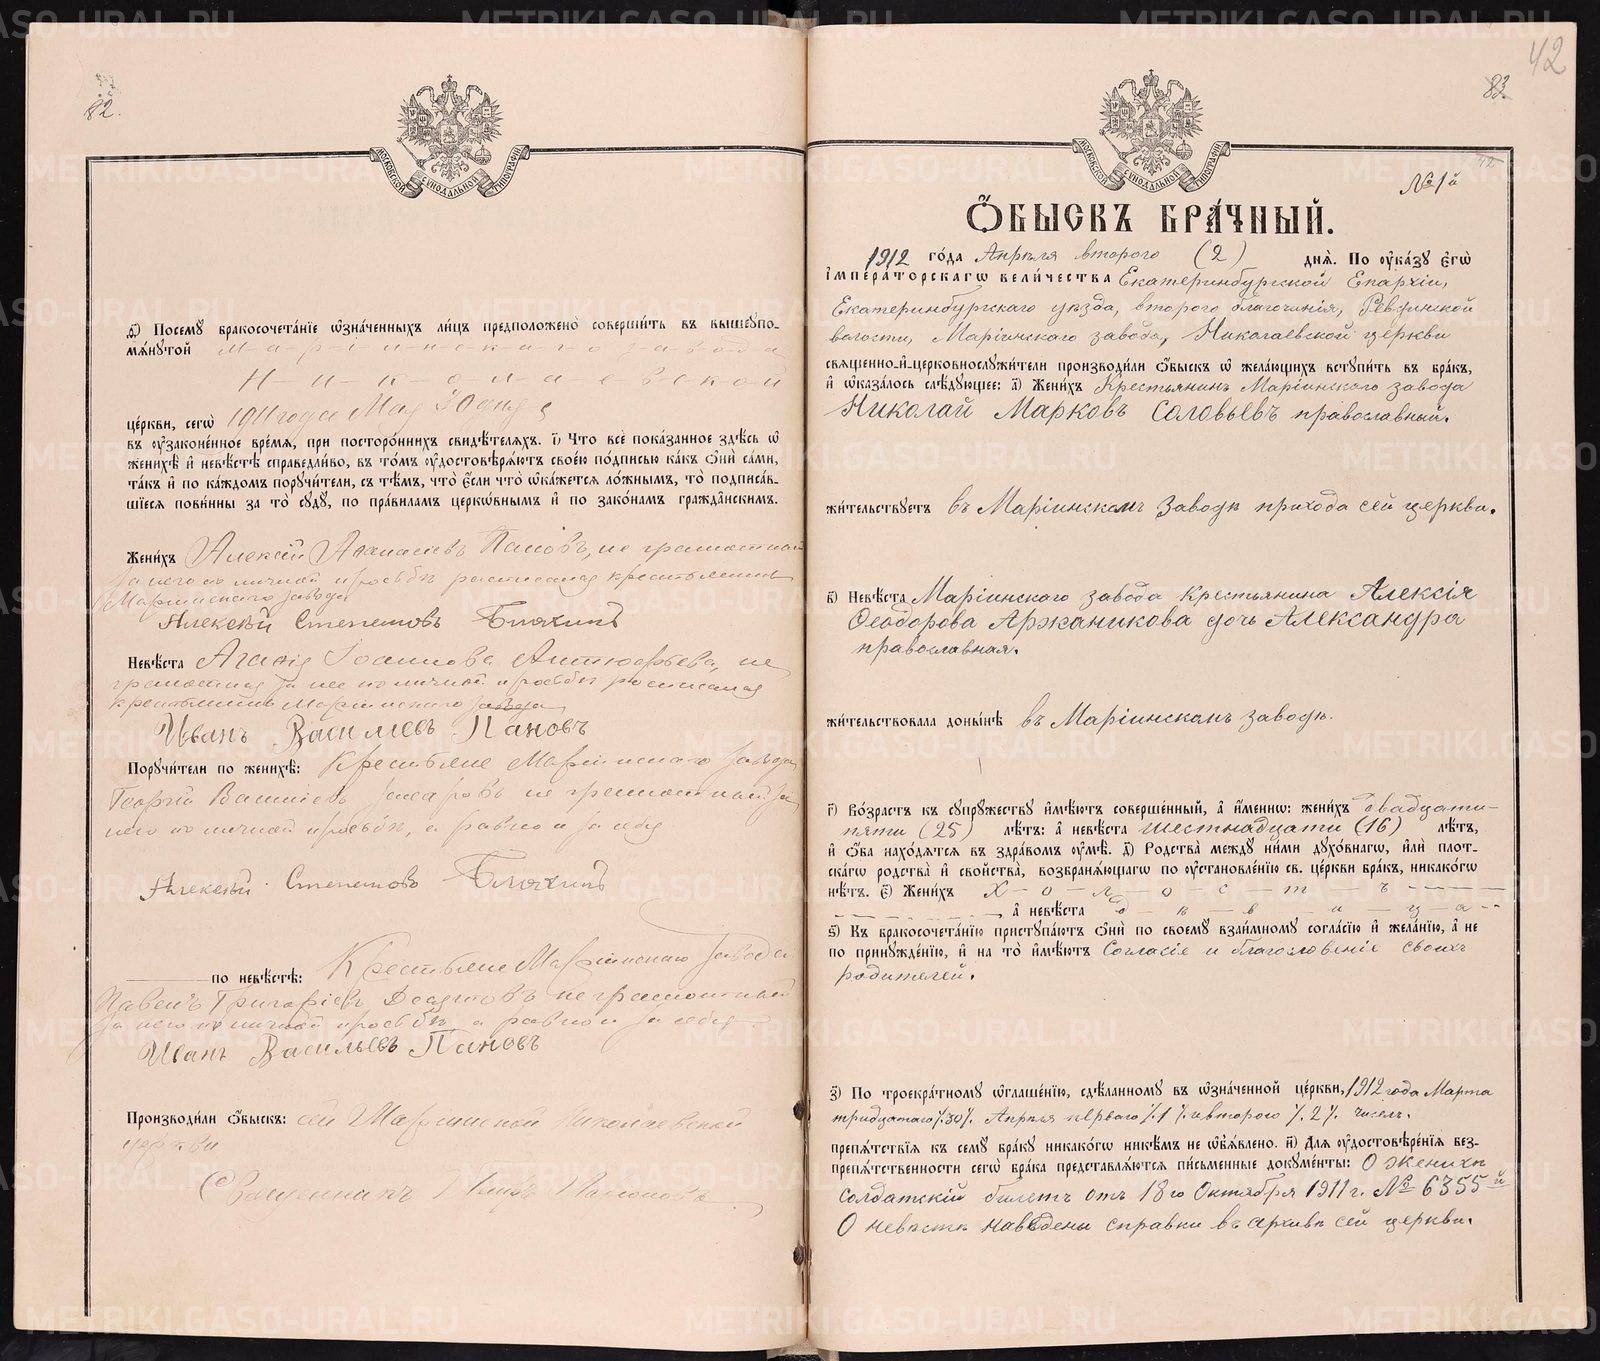 82.
МОСКОВСКОЙ СѴНОДАЛЬНОЙ ТИПОГРАФІИ
д҃) Посемꙋ бракосочета́нїе ѡзна́ченныхъ ли́цъ предположено̀ соверши́ть въ вышеꙋпо-
мѧ́нꙋтой М-а-р-і-и-н-с-к-а-г-о з-а-в-о-д-а
Н-и-к-о-л-а-е-в-с-к-о-й
це́ркви, сегѡ̀ 1911 года Мая 30 дня
въ ᲂу҆зако́ненное вре́мѧ, при посторо́ннихъ свидѣ́телѧхъ. і҃) Что̀ всѐ пока́занное здѣ́сь ѡ
женихѣ̀ и҆ невѣ́стѣ справедли́во, въ то́мъ ᲂу҆достовѣрѧ́ютъ свое́ю по́дписью ка́къ ѻ҆нѝ са́ми,
та́къ и҆ по ка́ждомъ порꙋчи́тели, съ тѣ́мъ, что̀ є҆́сли что̀ ѡ҆ка́жетсѧ ло́жнымъ, то̀ подписа́в-
шїесѧ пови́нны за то̀ сꙋдꙋ̀, по пра́виламъ церко́внымъ и҆ по зако́намъ гражда́нскимъ.
Жени́хъ Алексѣй Аѳанасіевъ Пановъ, не грамотный
за него по личной просьбѣ расписался крестьянинъ
Маріинскаго завода
Алексѣй Степановъ Блохинъ
Невѣ́ста Агаѳія Іоаннова Антюфьева, не
грамотная за нее по личной просьбѣ росписался
крестьянинъ Маріинскаго завода
Иванъ Василіевъ Пановъ
Порꙋчи́тели по женихѣ̀: Крестьяне Маріинскаго завода
Георгій Василіевъ Захаровъ не грамотный за
него по личной просьбѣ, а равно и за себя
Алексѣй Степановъ Блохинъ
по невѣ́стѣ: Крестьяне Маріинскаго завода
Павелъ Григоріевъ неграмотный
за него по личной просьбѣ, а равно и за себя
Иванъ Васильевъ Пановъ
Производи́ли ѻ҆́быскъ: сей Маріинской Николаевской
церкви
Священникъ
42
83.
МОСКОВСКОЙ СѴНОДАЛЬНОЙ ТИПОГРАФІИ
42
№ 1й
Ѻ҆́БЫСКЪ БРА́ЧНЫЙ.
1912 го́да Апрѣля второго (2) днѧ̀. По ᲂу҆ка́зꙋ є҆гѡ̀
і҆мпера́торскагѡ вели́чества Екатеринбургской Епархіи,
Екатеринбургскаго уѣзда, второго благочинія, Ревдинской
волости, Маріинскаго завода, Николаевской церкви
свѧще́нно-и҆-церковнослꙋжи́тели производи́ли ѻ҆́быскъ ѡ жела́ющихъ встꙋпи́ть въ бра́къ,
и҆ ѡ҆каза́лось слѣ́дꙋющее: а҃) Жени́хъ Крестьянинъ Маріинскаго завода
Николай Марковъ Соловьевъ православный.
жи́тельствꙋетъ въ Маріинскомъ Заводѣ прихода сей церкви.
в҃) Невѣ́ста Маріинскаго завода крестьянина Алексія
Ѳеодорова Аржаникова дочь Александра
православная.
жи́тельствовала донынѣ въ Маріинскомъ заводѣ.
г҃) Во́зрастъ къ сꙋпрꙋ́жествꙋ и҆мѣ́ютъ соверше́нный, а҆ и҆́меннѡ: жени́хъ двадцати-
пяти (25) лѣ́тъ: а҆ невѣ́ста шестнадцати (16) лѣ́тъ,
и҆ ѻ҆́ба нахо́дѧтсѧ въ здра́вомъ ᲂу҆мѣ̀. д҃) Родства̀ междꙋ̀ ни́ми дꙋхо́внагѡ, и҆лѝ плот-
ска́гѡ родства̀ и҆ сво́йства, возбранѧ́ющагѡ по ᲂу҆становле́нїю св. це́ркви бра́къ, никако́гѡ
нѣ́тъ. є҃) Жени́хъ Х-о-л-о-с-т-ъ
, а҆ невѣ́ста д-ѣ-в-и-ц-а
ѕ҃) Къ бракосочета́нїю пристꙋпа́ютъ ѻ҆нѝ по своемꙋ̀ взаи́мномꙋ согла́сїю и҆ жела́нїю, а҆ не
по принꙋжде́нїю, и҆ на то̀ и҆мѣ́ютъ Согласіе и благословеніе своихъ
родителей.
з҃) По троекра́тномꙋ ѡ҆глаше́нїю, сдѣ́ланномꙋ въ ѡзна́ченной це́ркви, 1912 года Марта
тридцатаго /.30/. Апрѣля перваго /.1/. и второго /.2/. чиселъ.
препѧ́тствїѧ къ семꙋ̀ бра́кꙋ никако́гѡ никѣ́мъ не ѡ҆б̾ѧ́влено. и҃) Длѧ ᲂу҆достовѣре́нїѧ без-
препѧ́тственности сегѡ̀ бра́ка представлѧ́ютсѧ пи́сьменные докꙋме́нты: О женихѣ
солдатскій билетъ отъ 18го Октября 1911 г. № 6355й
О невѣстѣ наведены справки въ архивѣ сей церкви.
METRIKI.GASO-URAL.RU